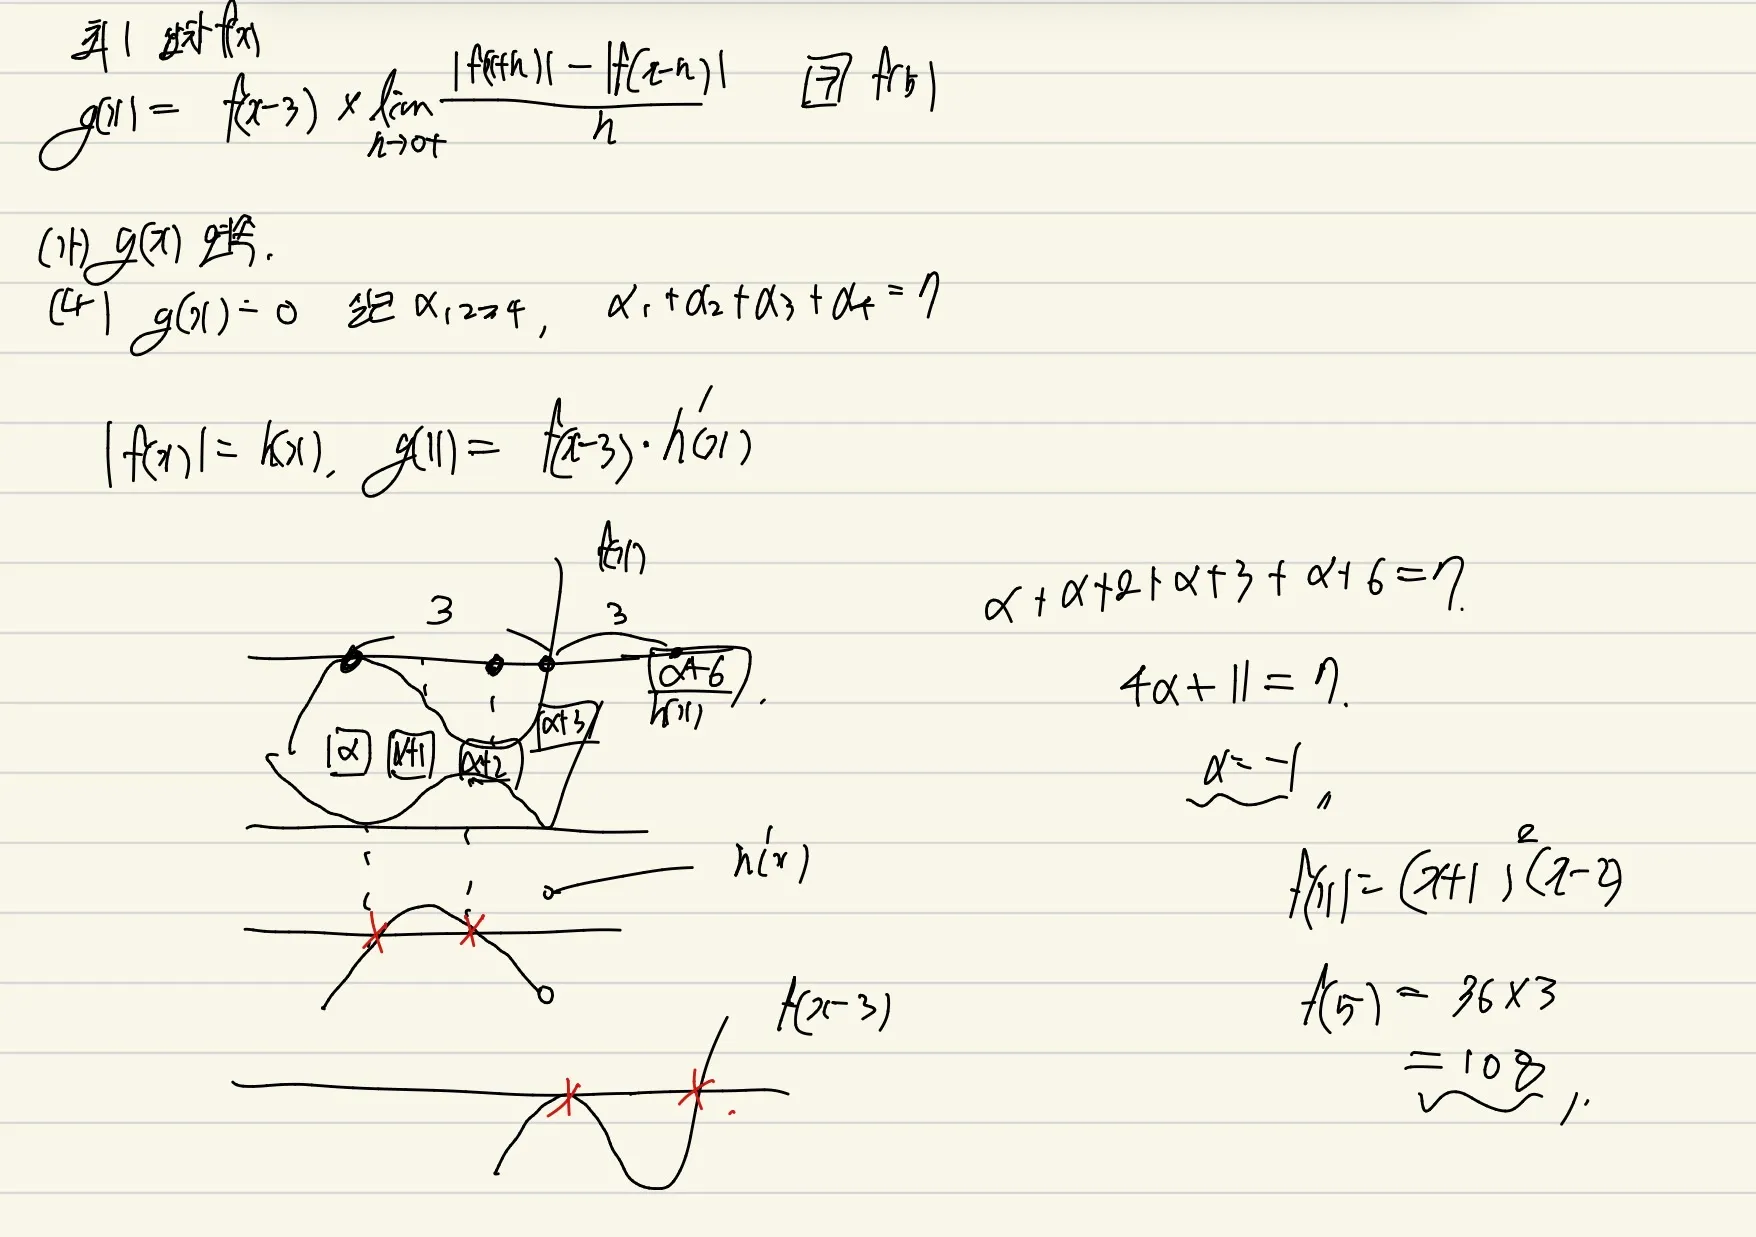 최1 삼차 f(x)
g(x) = f(x-3) × lim h→0+ |f(x+h)| - |f(x-h)| / h 구 f(5)
(가) g(x) 연속.
(나) g(x) = 0 실근 α1 2 3 4, α1 + α2 + α3 + α4 = 7
|f(x)| = h(x). g(x) = f(x-3)·h'(x)
f(x)
3 3
α+6
h(x)
α α+1 α+2 α+3
h'(x)
f(x-3)
α + α+2 + α+3 + α+6 = 7.
4α + 11 = 7.
α = -1
f(x) = (x+1)²(x-2)
f(5) = 36 × 3
= 108